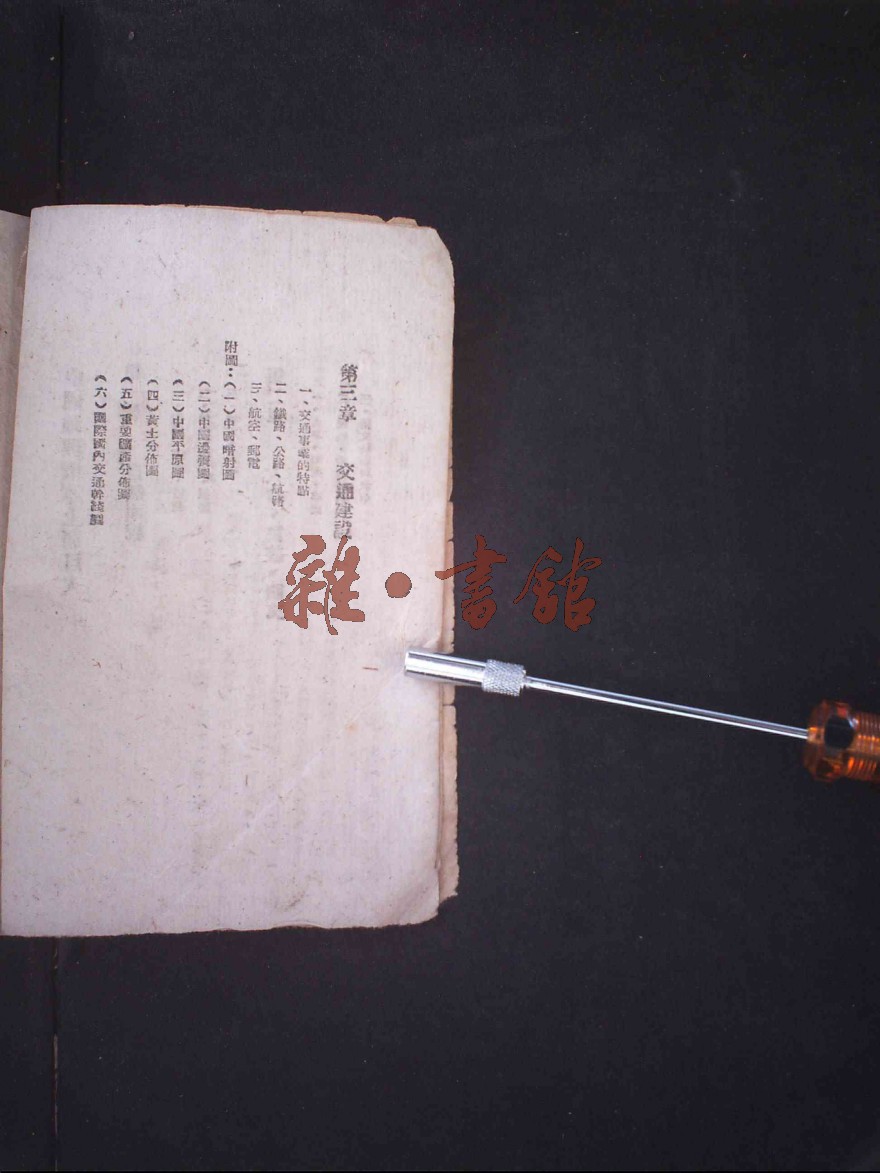 第三章　交通建設
一、交通事業的特點
二、鐵路、公路、航路
三、航空、郵電
附圖：（一）中國暗射圖
（二）中國邊疆圖
（三）中國平原圖
（四）黃土分佈圖
（五）重要礦產分佈圖
（六）國際國內交通幹綫圖
雜·書館